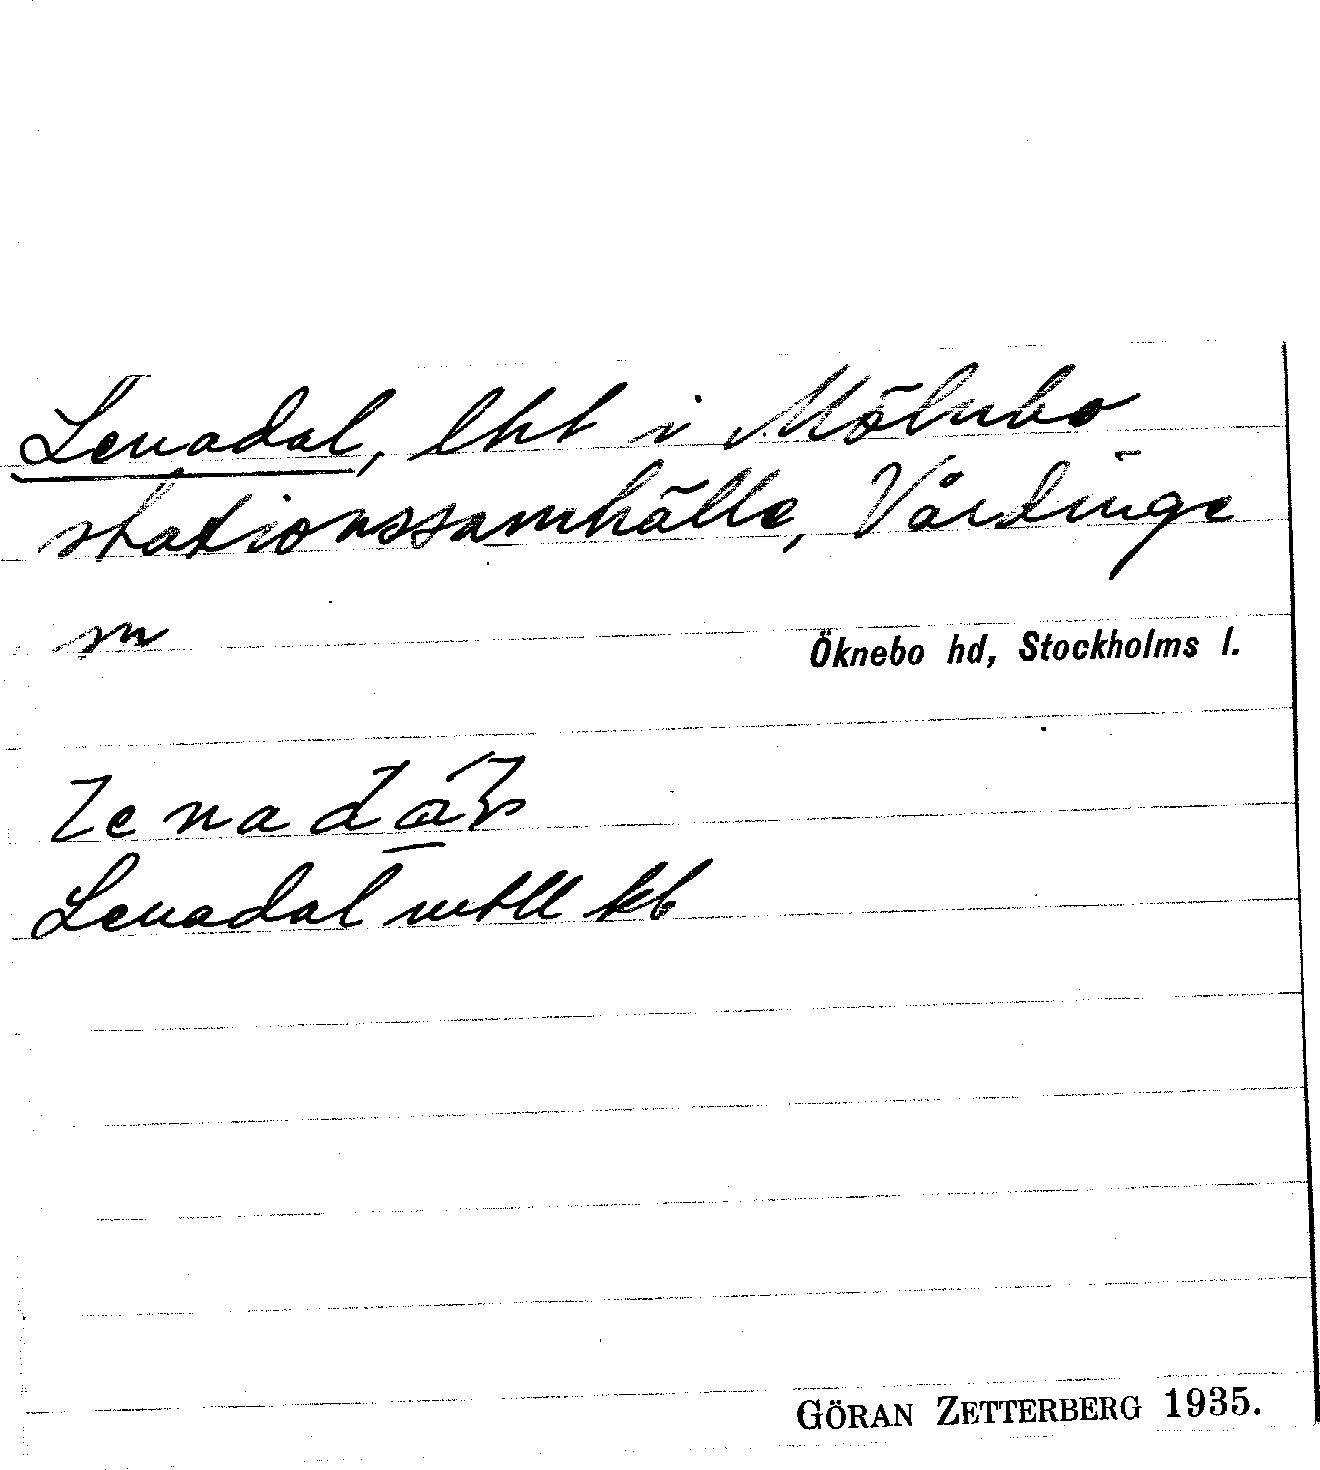 Lenadal, lht i Mölnbo
stationssamhälle, Vårdinge
sn
Öknebo hd, Stockholms l.
Lenadal mtll kb
GÖRAN ZETTERBERG 1935.